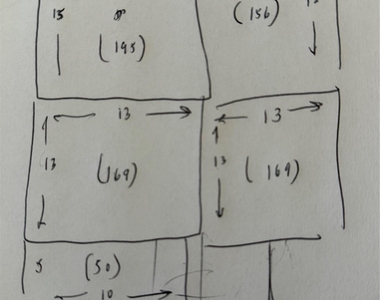 (156)
15
(195)
13
13
13
13
(169)
(169)
5
(50)
10